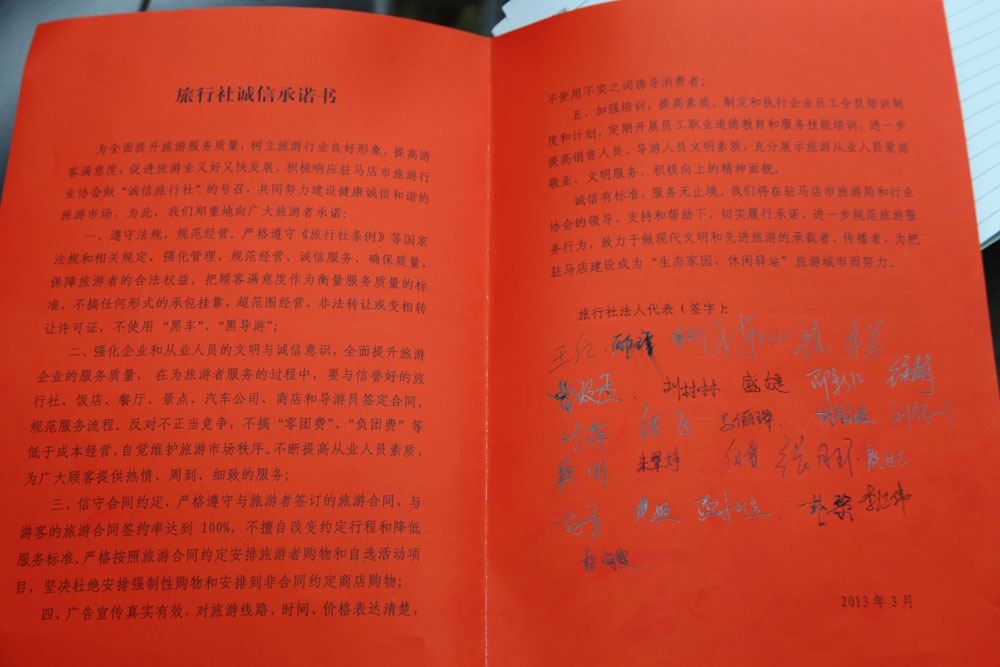 旅行社诚信承诺书
为全面提升旅游服务质量，树立旅游行业良好形象，提高游
客满意度，促进旅游业又好又快发展，积极响应驻马店市旅游行
业协会做“诚信旅行社”的号召，共同努力建设健康诚信和谐的
旅游市场，为此，我们郑重地向广大旅游者承诺：
一、遵守法规，规范经营。严格遵守《旅行社条例》等国家
法规和相关规定，强化管理、规范经营、诚信服务、确保质量，
保障旅游者的合法权益。把顾客满意度作为衡量服务质量的标
准。不搞任何形式的承包挂靠、超范围经营、非法转让或变相转
让许可证，不使用“黑车”、“黑导游”；
二、强化企业和从业人员的文明与诚信意识，全面提升旅游
企业的服务质量，在为旅游者服务的过程中，要与信誉好的旅
行社、饭店、餐厅、景点、汽车公司、商店和导游员签定合同，
规范服务流程。反对不正当竞争，不搞“零团费”、“负团费”等
低于成本经营，自觉维护旅游市场秩序。不断提高从业人员素质，
为广大顾客提供热情、周到、细致的服务；
三、信守合同约定，严格遵守与旅游者签订的旅游合同，与
游客的旅游合同签约率达到 100%，不擅自改变约定行程和降低
服务标准。严格按照旅游合同约定安排旅游者购物和自选活动项
目，坚决杜绝安排强制性购物和安排到非合同约定商店购物；
四、广告宣传真实有效，对旅游线路、时间、价格表达清楚，
不使用不实之词诱导消费者；
五、加强培训，提高素质。制定和执行企业员工全员培训制
度和计划，定期开展员工职业道德教育和服务技能培训，进一步
提高销售人员、导游人员文明素质，充分展示旅游从业人员爱岗
敬业、文明服务、积极向上的精神面貌。
诚信有标准，服务无止境。我们将在驻马店市旅游局和行业
协会的领导、支持和帮助下，切实履行承诺，进一步规范旅游服
务行为，致力于做现代文明和先进旅游的承载者、传播者，为把
驻马店建设成为“生态家园、休闲驿站”旅游城市而努力。
旅行社法人代表（签字）：
王仁
刘林林
刘萍 张飞
张
李红伟
2013 年 3 月